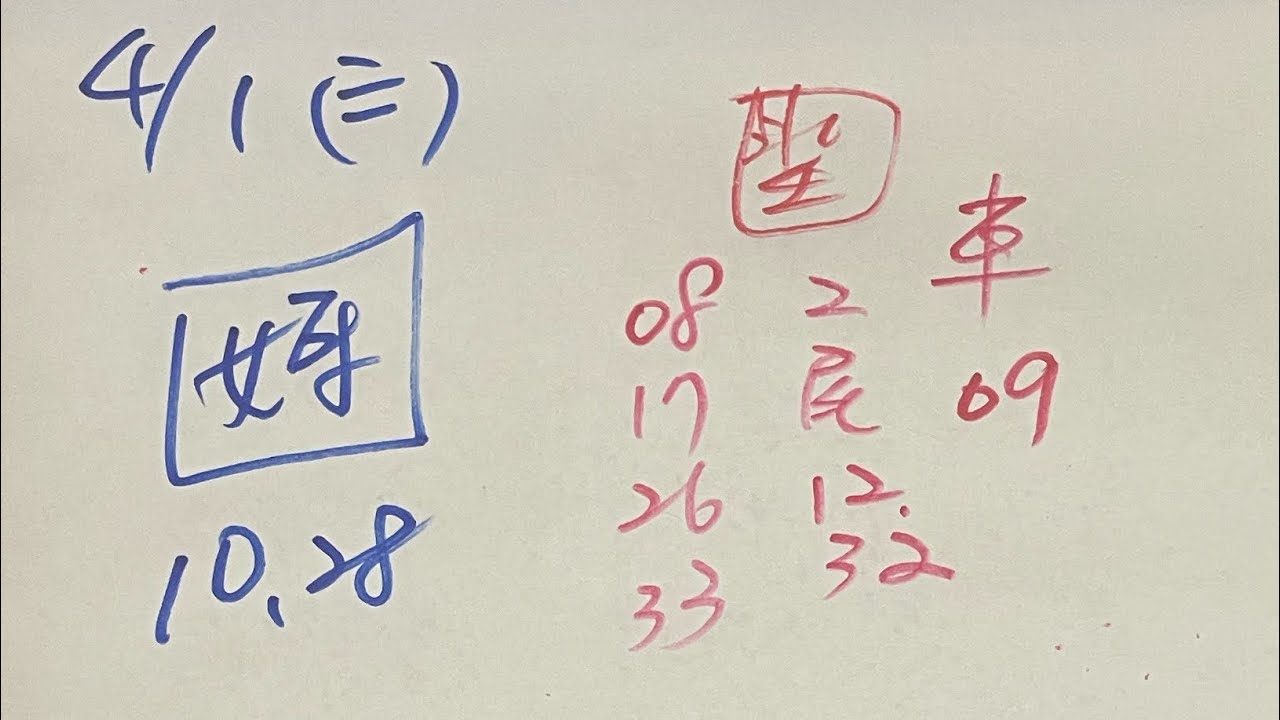 4/1 (三)
妤
10.28
聖
08
17
26
33
2
尾
12.
32
車
09